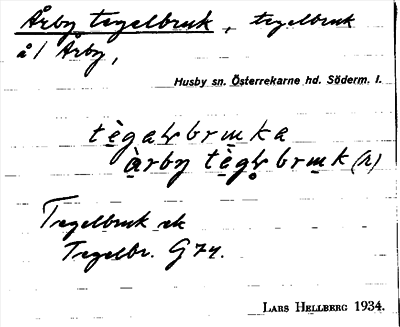 Årby tegelbruk, tegelbruk
å / Årby,
Husby sn. Österrekarne hd. Söderm. l.
tègaꝉbrụka
àrby tègꝉ̥brụk (a)
Tegelbruk ek
Tegelbr. G 74.
LARS HELLBERG 1934.